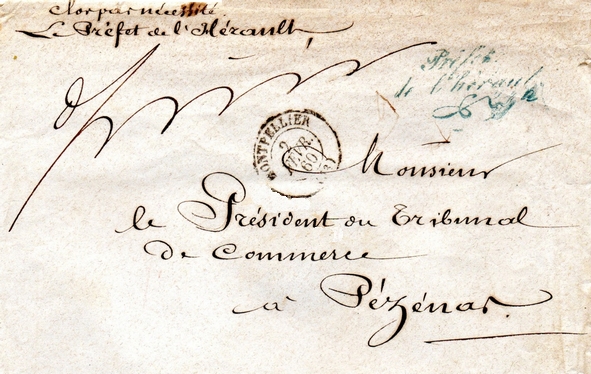 Clos par nécessité
Le Préfet de l'Hérault,
Préfet
de l'hérault
MONTPELLIER
2
FEVR.
60
Monsieur
le Président du Tribunal
de Commerce
à Pézénas.